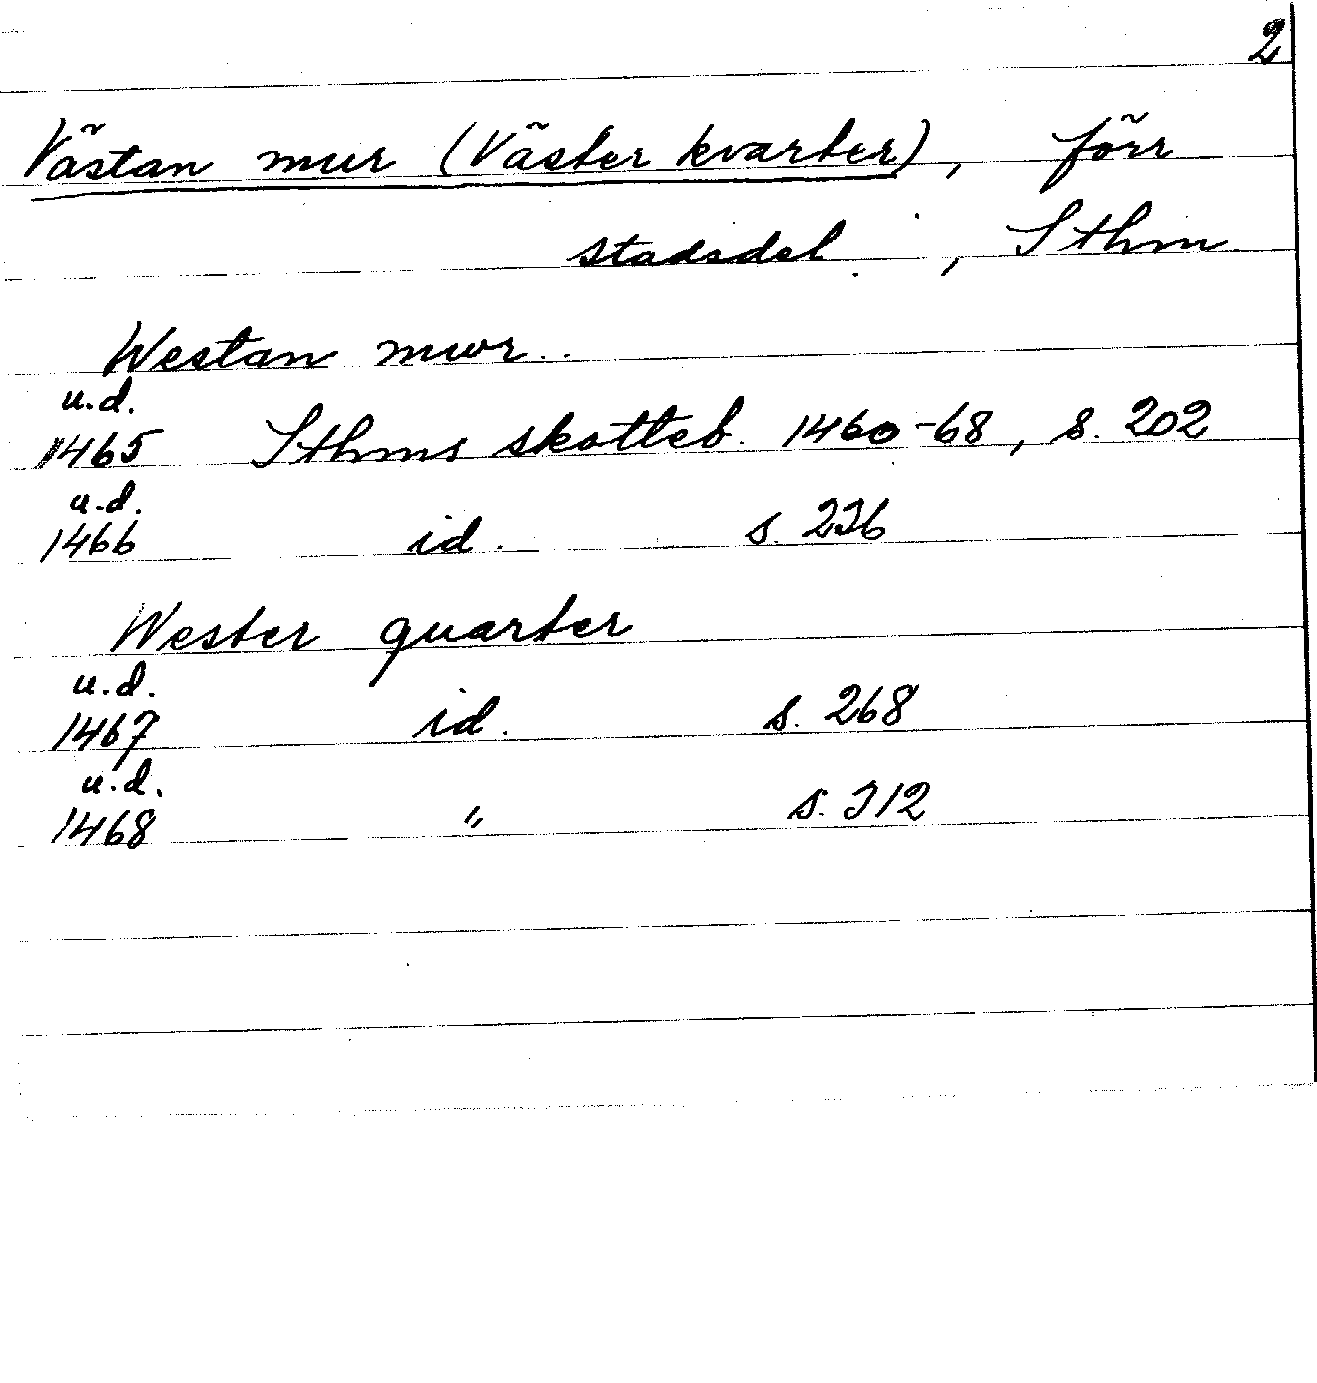 2
Västan mur (Väster kvarter), förr
stadsdel, Sthm
Westan mwr..
u.d.
1465 Sthms skotteb. 1460-68, s. 202
u.d.
1466 id. s. 236
Wester quarter
u.d.
1467 id. s. 268
u.d.
1468 " s. 312